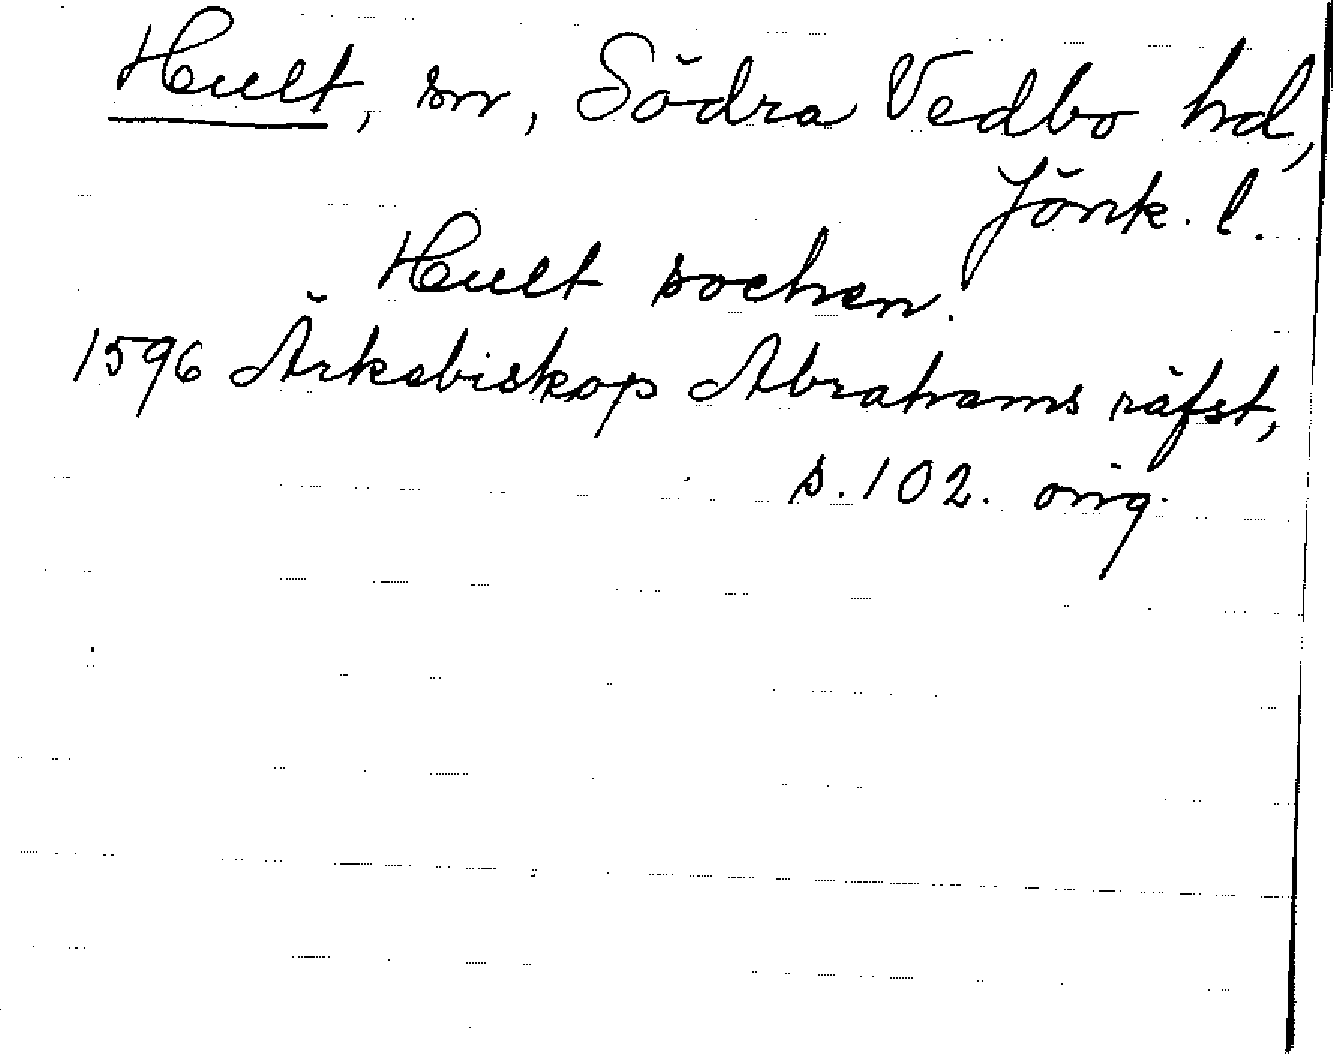 Hult, sn, Södra Vedbo hd,
Jönk. l.
Hult sochen.
1596 Ärkebiskop Abrahams räfst,
s. 102. orig.